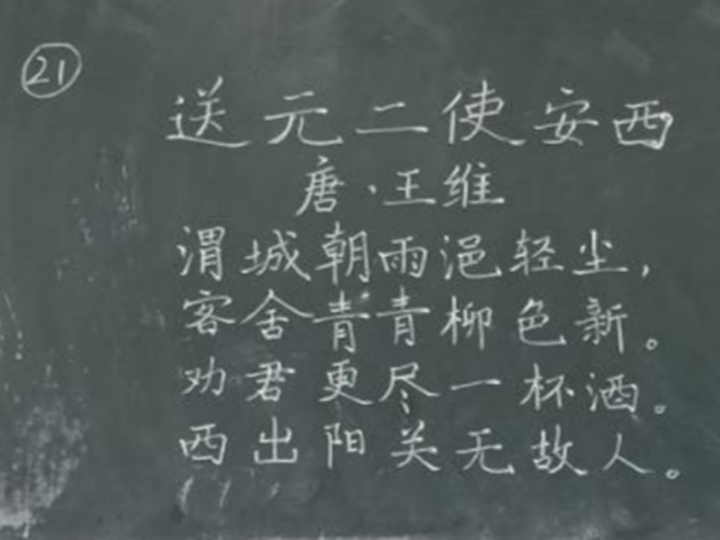 21
送元二使安西
唐·王维
渭城朝雨浥轻尘,
客舍青青柳色新。
劝君更尽一杯酒。
西出阳关无故人。